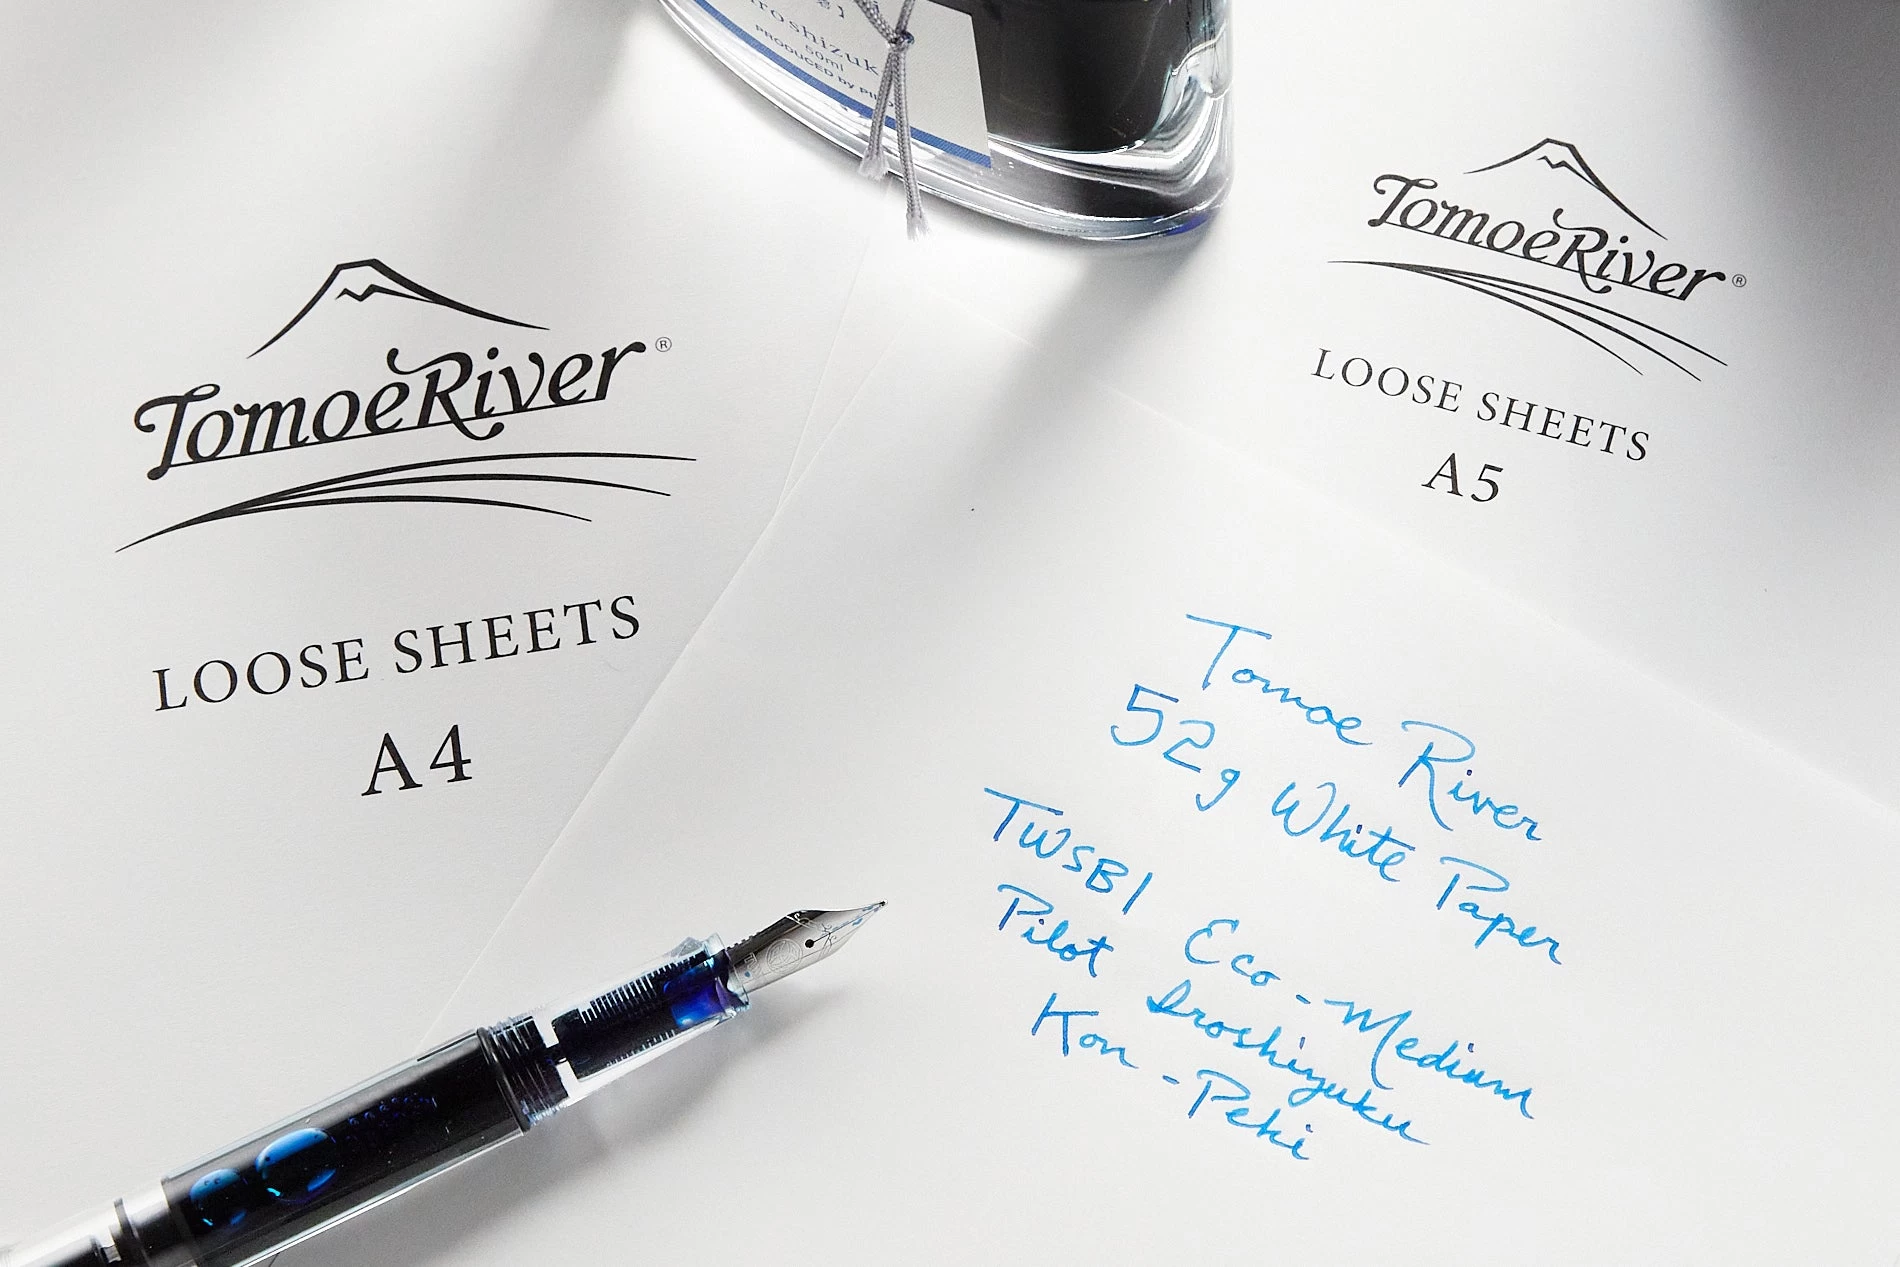 50ml
PRODUCED by
TomoeRiver®
LOOSE SHEETS
A4
TomoeRiver®
LOOSE SHEETS
A5
Tomoe River
52g White Paper
TWSBI Eco - Medium
Pilot Iroshizuku
Kon - Peki